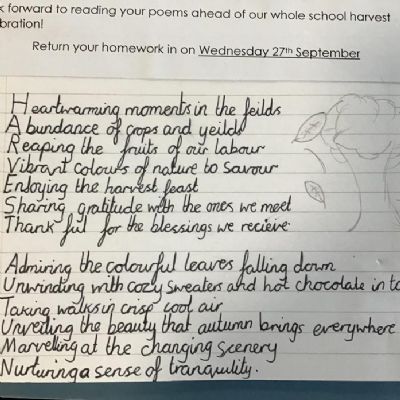 k forward to reading your poems ahead of our whole school harvest
bration!
Return your homework in on Wednesday 27th September
Heartwarming moments in the feilds
Abundance of crops and yeilds
Reaping the fruits of our labour
Vibrant colours of nature to savour
Enjoying the harvest feast
Sharing gratitude with the ones we meet
Thankful for the blessings we recieve
Admiring the colourful leaves falling down
Unwinding with cozy sweaters and hot chocolate in to
Taking walks in crisp cool air
Unveiling the beauty that autumn brings everywhere
Marvelling at the changing scenery
Nurturing a sense of tranquility.